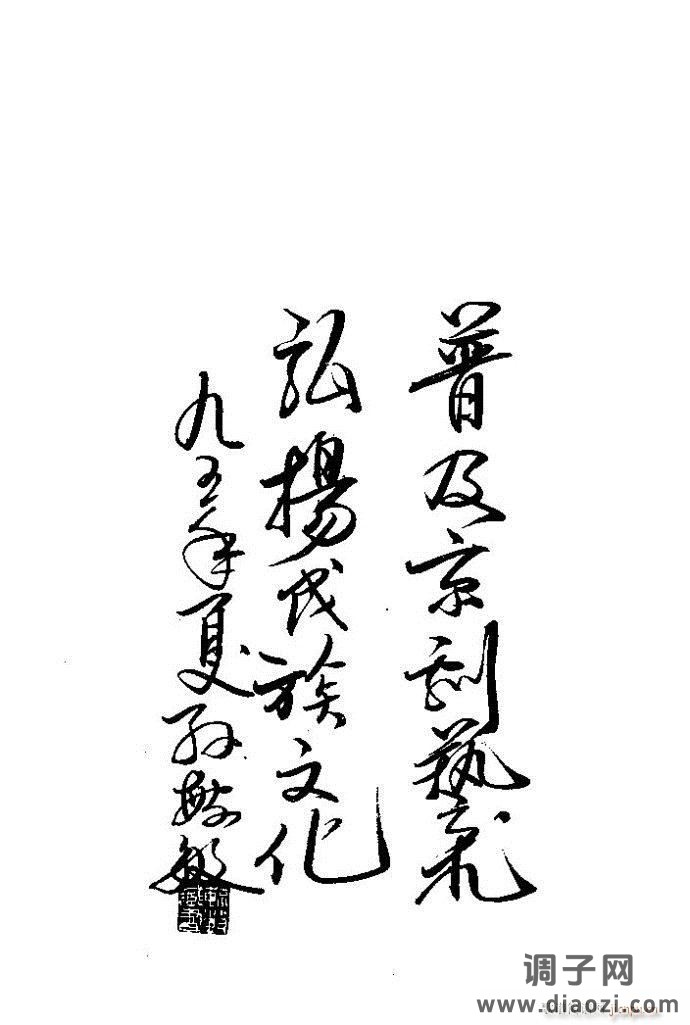 普及京剧藝术
弘揚民族文化
九五年夏 孙敬敏
调子网
www.diaozi.com